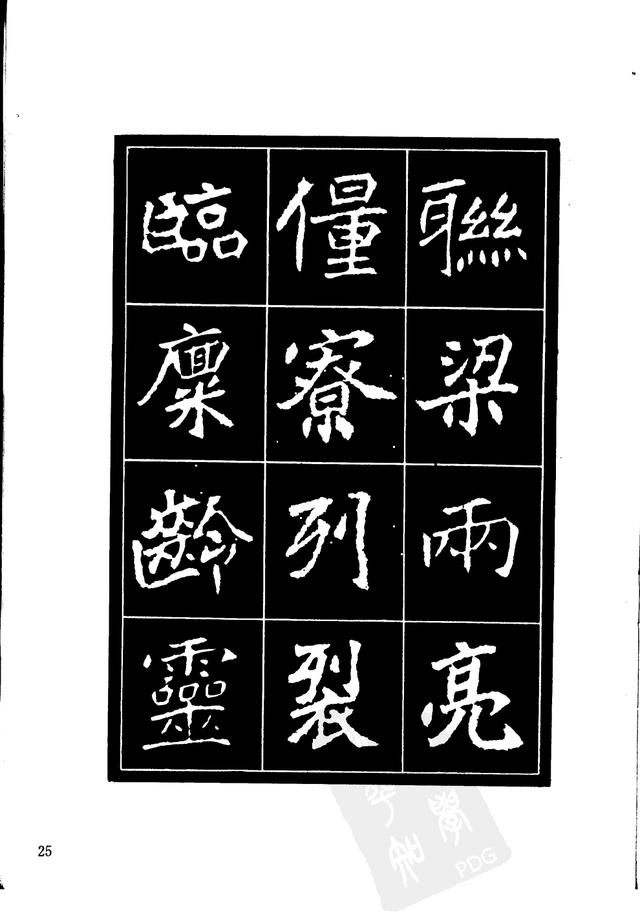 聯梁兩亮
寮列裂
臨廩齡靈
25
PDG